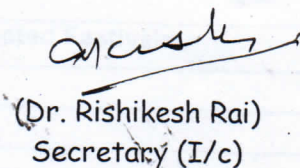 (Dr. Rishikesh Rai)
Secretary (I/c)